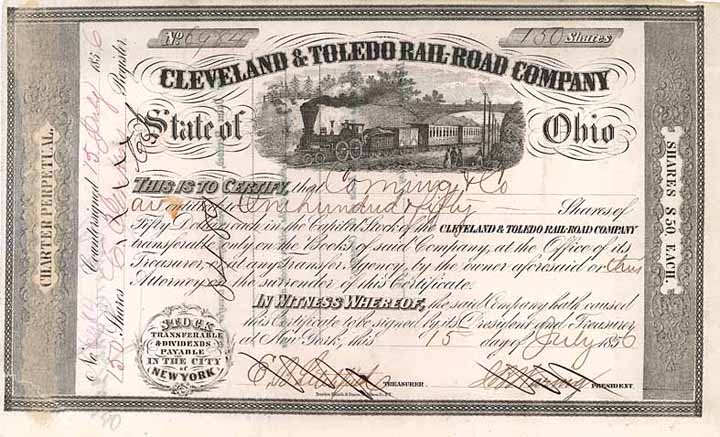 No. 6984
150 Shares
CLEVELAND & TOLEDO RAIL-ROAD COMPANY
State of Ohio
THIS IS TO CERTIFY, that Corning & Co
are entitled to One hundred & fifty Shares of
Fifty Dollars each in the Capital Stock of the CLEVELAND & TOLEDO RAIL-ROAD COMPANY
transferable only on the Books of said Company, at the Office of its
Treasurer, or at any Transfer Agency, by the owner aforesaid or their
Attorney on the surrender of this Certificate.
IN WITNESS WHEREOF, the said Company hath caused
this Certificate to be signed by its President and Treasurer
at New York, this 15 day of July 1856
TREASURER.
PRESIDENT.
STOCK
TRANSFERABLE
& DIVIDENDS
PAYABLE
IN THE CITY
of
NEW YORK
CHARTER PERPETUAL.
Countersigned 15 July 1856
Register
No.
150 Shares
SHARES $50 EACH.